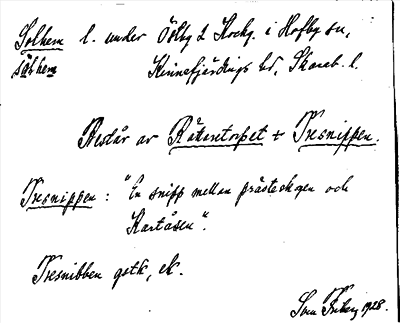 Solhem l. under Ösby 2 Krckg. i Hofby sn,
sɷlhem Kinnefjärdings hd, Skarab. l.
Består av Råkaretorpet + Tresnippen.
Tresnippen: "En snipp mellan prästeskogen och
Kartåsen".
Tresnibben gstk, ek.
Sven Friberg 1928.